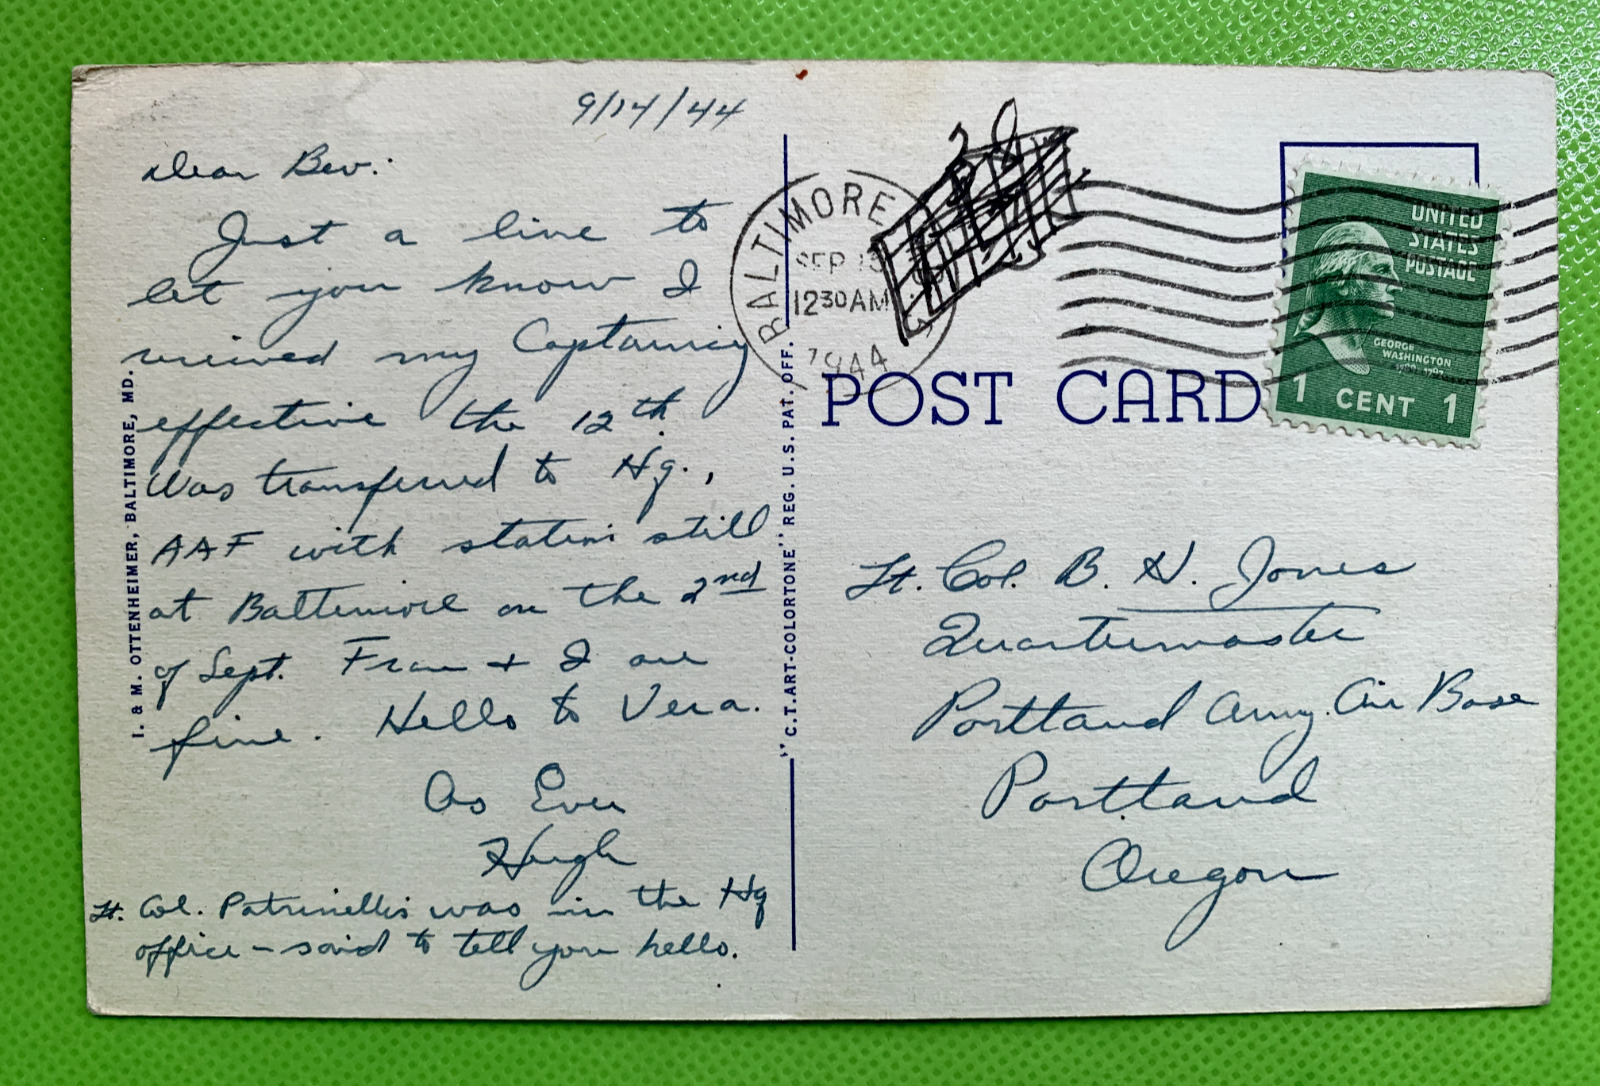 9/14/44
Dear Bev:
Just a line to
let you know I
received my Captaincy
effective the 12th.
Was transferred to Hq.,
AAF with station still
at Baltimore on the 2nd
of Sept. Fran + I are
fine. Hello to Vera.
As Ever
Hugh
Lt. Col. Patrinellis was in the Hq
office - said to tell you hello.
I. & M. OTTENHEIMER, BALTIMORE, MD.
"C.T. ART-COLORTONE" REG. U.S. PAT. OFF.
BALTIMORE
SEP 15
1230AM
1944
UNITED
STATES
POSTAGE
GEORGE
WASHINGTON
1 CENT 1
POST CARD
Lt. Col. B. H. Jones
Quartermaster
Portland Army Air Base
Portland
Oregon